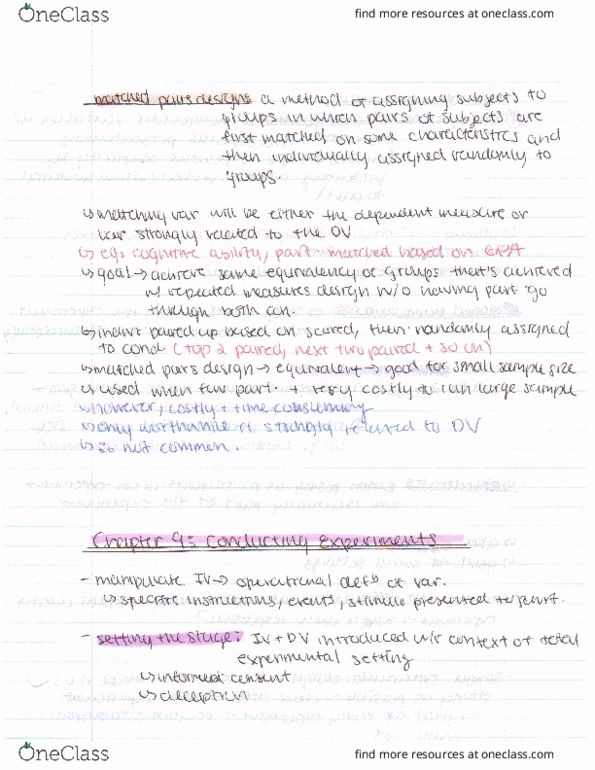 OneClass
find more resources at oneclass.com
matched pairs designs a method of assigning subjects to
groups in which pairs of subjects are
first matched on some characteristics and
then individually assigned randomly to
groups.
↳ matching var will be either the dependent measure or
var strongly related to the DV
↳ eg: cognitive ability, part matched based on GPA
↳ goal → achieve same equivalency of groups that's achieved
w/ repeated measures design w/o having part go
through both con.
↳ indivi paired up based on scored, then randomly assigned
to cond. (top 2 paired, next two paired + so on)
↳ matched pairs design → equivalent → good for small sample size
↳ used when few part. + very costly to run large sample
↳ however, costly + time consuming
↳ only worthwhile if strongly related to DV
↳ so not common.
Chapter 9: Conducting Experiments
- manipulate IV → operational defn of var.
↳ specific instructions, events, stimuli presented to part.
- setting the stage: IV + DV introduced w/i context of total
experimental setting
↳ informed consent
↳ deception
OneClass
find more resources at oneclass.com